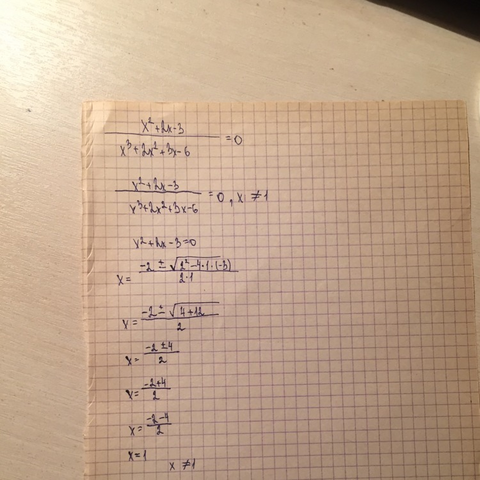 x²+2x-3 / x³+2x²+3x-6 = 0
x²+2x-3 / x³+2x²+3x-6 = 0, x ≠ 1
x²+2x-3=0
x = -2 ± √(2²-4·1·(-3)) / 2·1
x = -2 ± √(4+12) / 2
x = -2 ± 4 / 2
x = -2+4 / 2
x = -2-4 / 2
x = 1
x ≠ 1